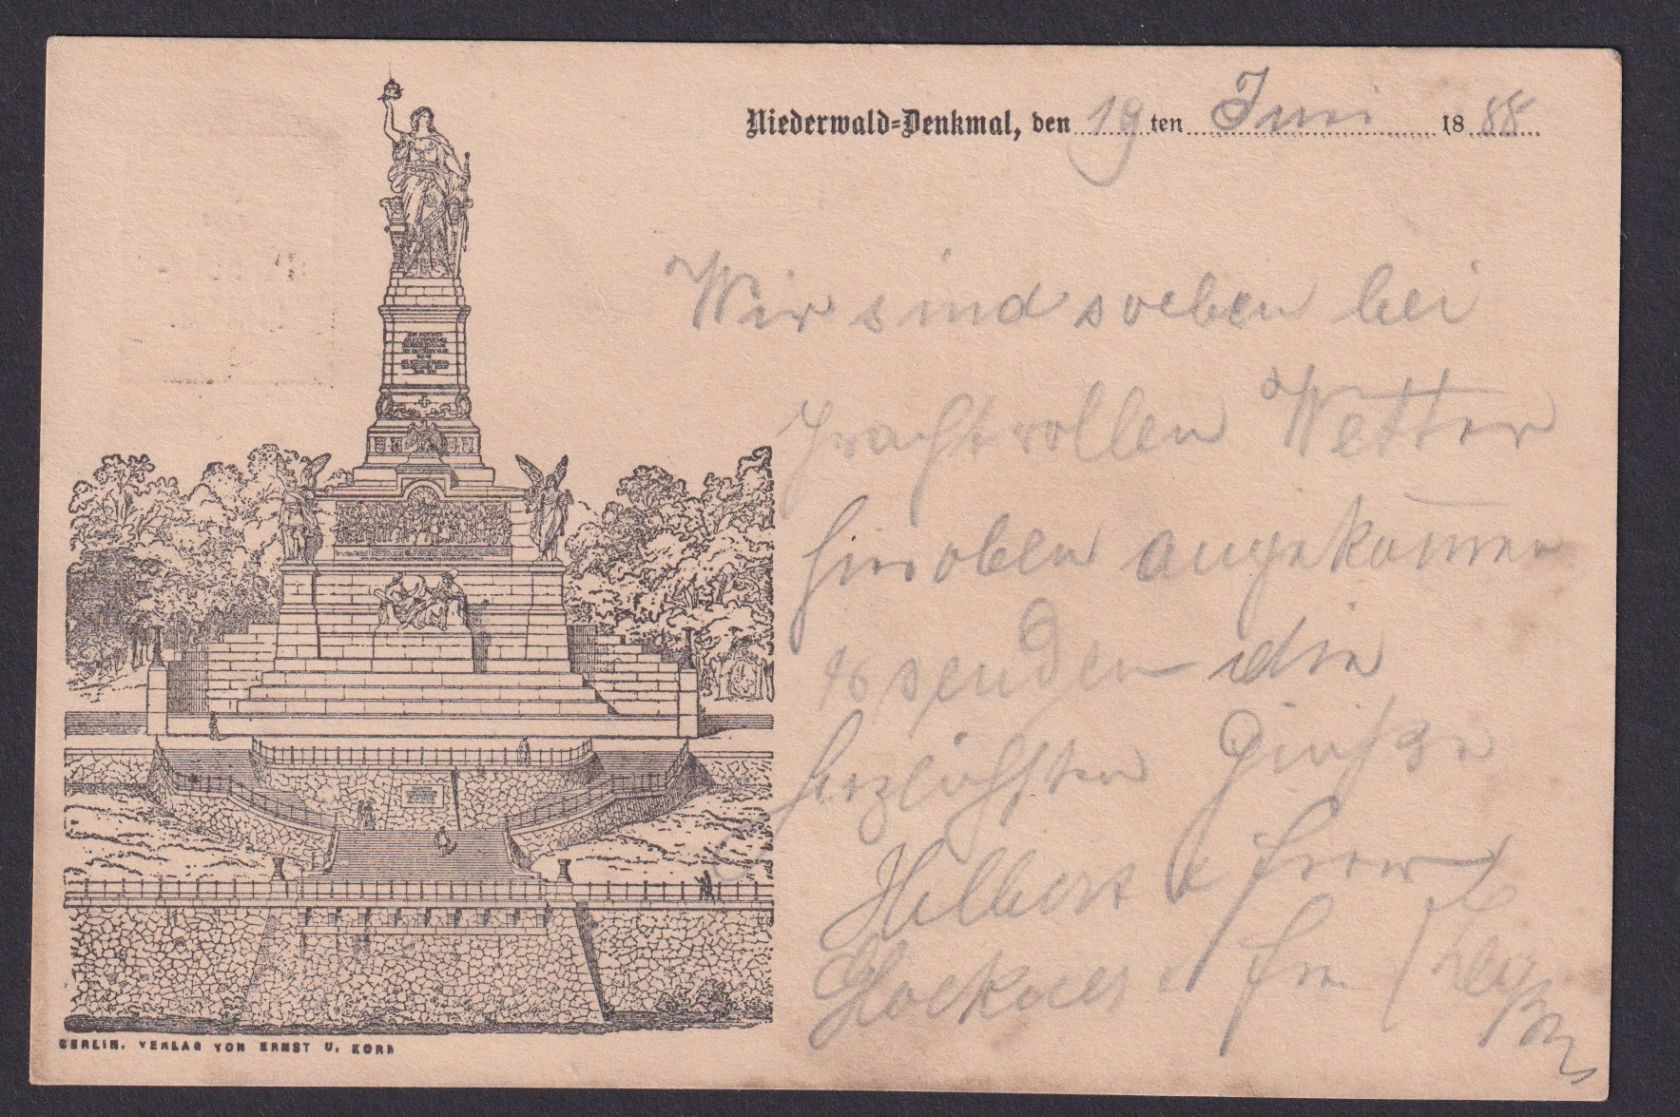 Niederwald=Denkmal, den 19ten Juni 1888
Wir sind soeben bei
prachtvollen Wetter
hier oben angekom̄en
senden die
herzlichsten Grüße
Hilbert & Frau
& Fr.
BERLIN. VERLAG VON ERNST U. KORN